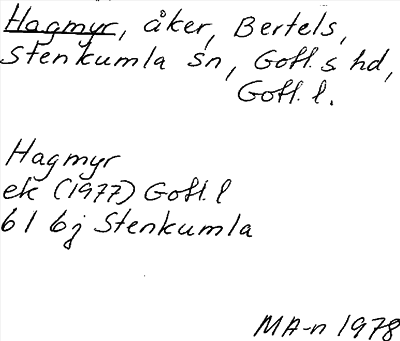 Hagmyr, åker, Bertels,
Stenkumla sn, Gotl. s hd,
Gotl. l.
Hagmyr
ek (1977) Gotl. l
6 I 6j Stenkumla
MA-n 1978